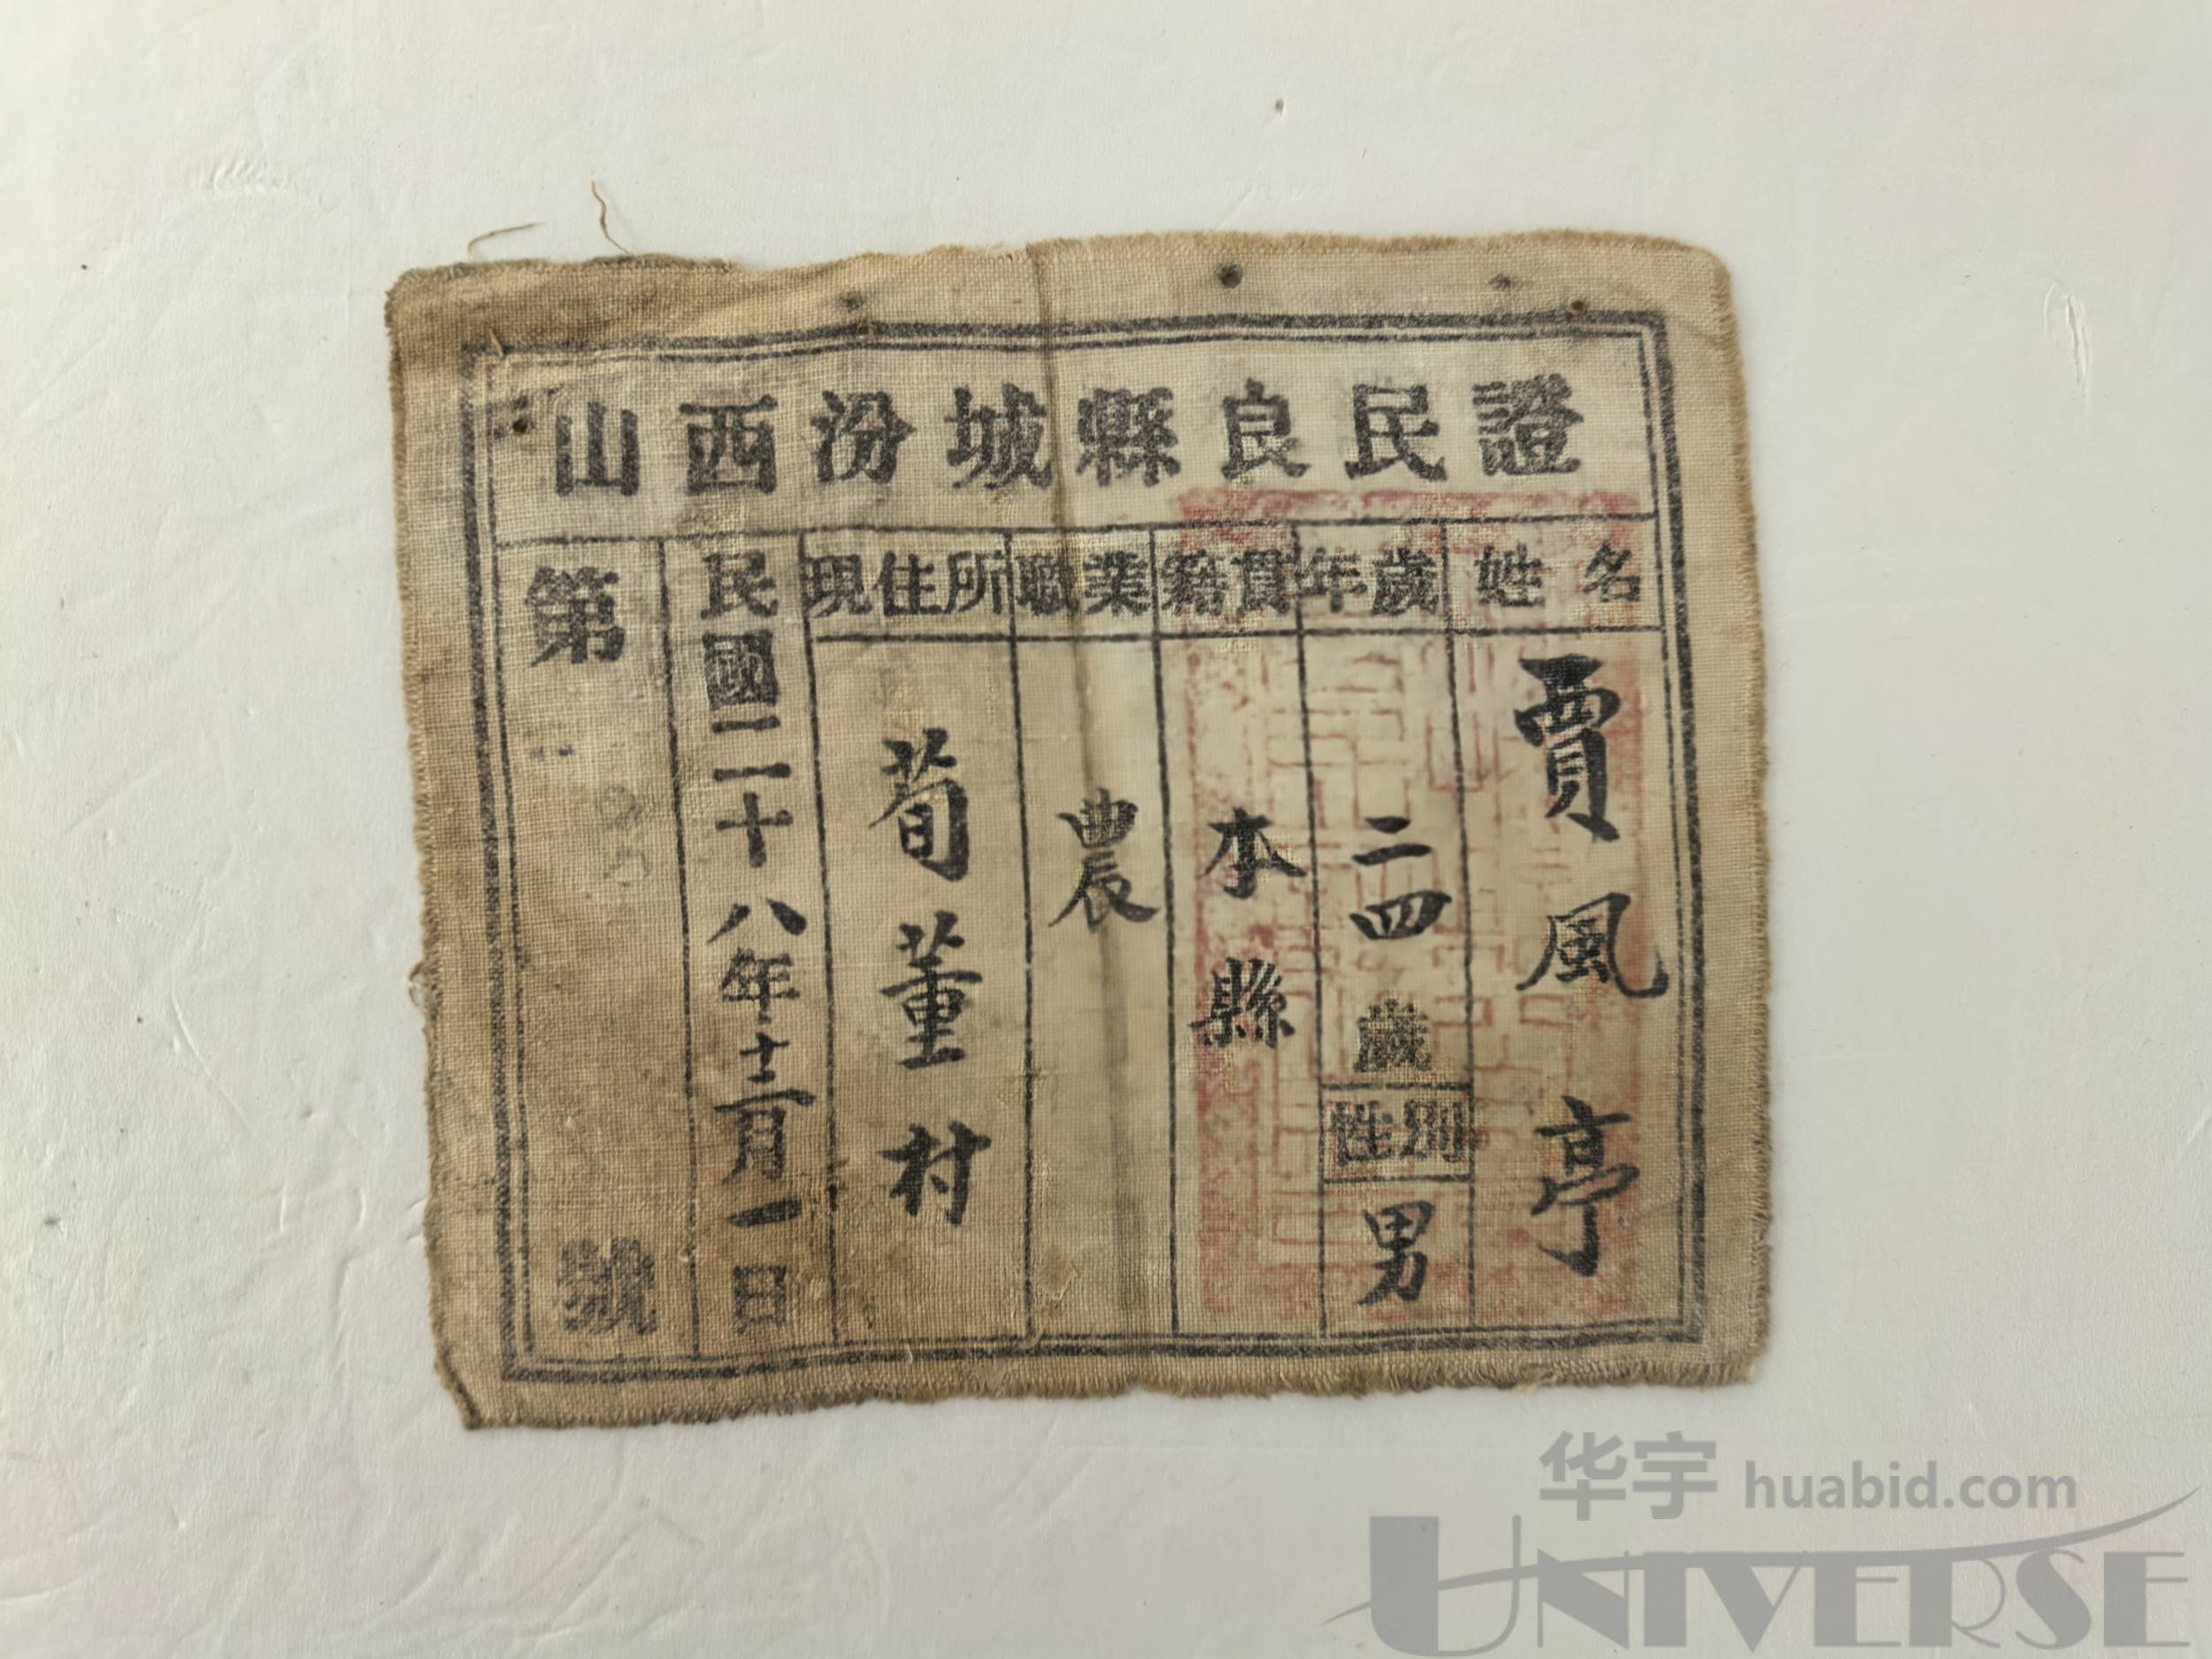 山西汾城縣良民證
姓名
賈風亭
年歲
二四歲
性別
男
籍貫
本縣
職業
農
現住所
荀董村
民國二十八年十二月一日
第
號
华宇 huabid.com
UNIVERSE